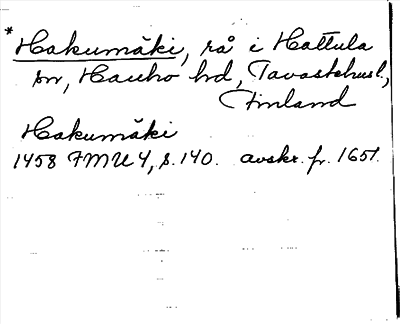 *Hakumäki, rå i Hattula
sn, Hauho hd, Tavastehusl.,
Finland
Hakumäki
1458 FMU 4, s. 140. avskr. fr. 1651.